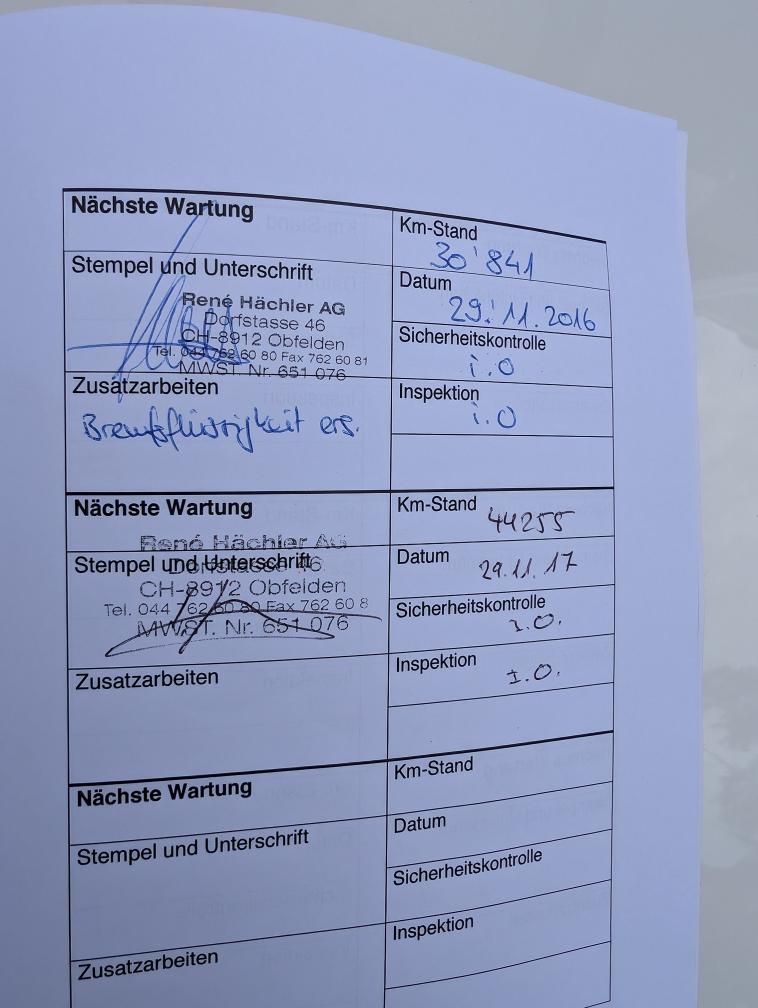 Nächste Wartung
Km-Stand
30'841
Stempel und Unterschrift
René Hächler AG
Dorfstasse 46
CH-8912 Obfelden
Tel. 044 762 60 80 Fax 762 60 81
MWST. Nr. 651 076
Datum
29.11.2016
Sicherheitskontrolle
i.O
Zusatzarbeiten
Bremsflüssigkeit ers.
Inspektion
i.O
Nächste Wartung
Km-Stand
44255
René Hächler AG
Stempel und Unterschrift
Dorfstasse 46
CH-8912 Obfelden
Tel. 044 762 60 80 Fax 762 60 8
MWST. Nr. 651 076
Datum
29.11.17
Sicherheitskontrolle
I.O.
Zusatzarbeiten
Inspektion
I.O.
Nächste Wartung
Km-Stand
Stempel und Unterschrift
Datum
Sicherheitskontrolle
Zusatzarbeiten
Inspektion